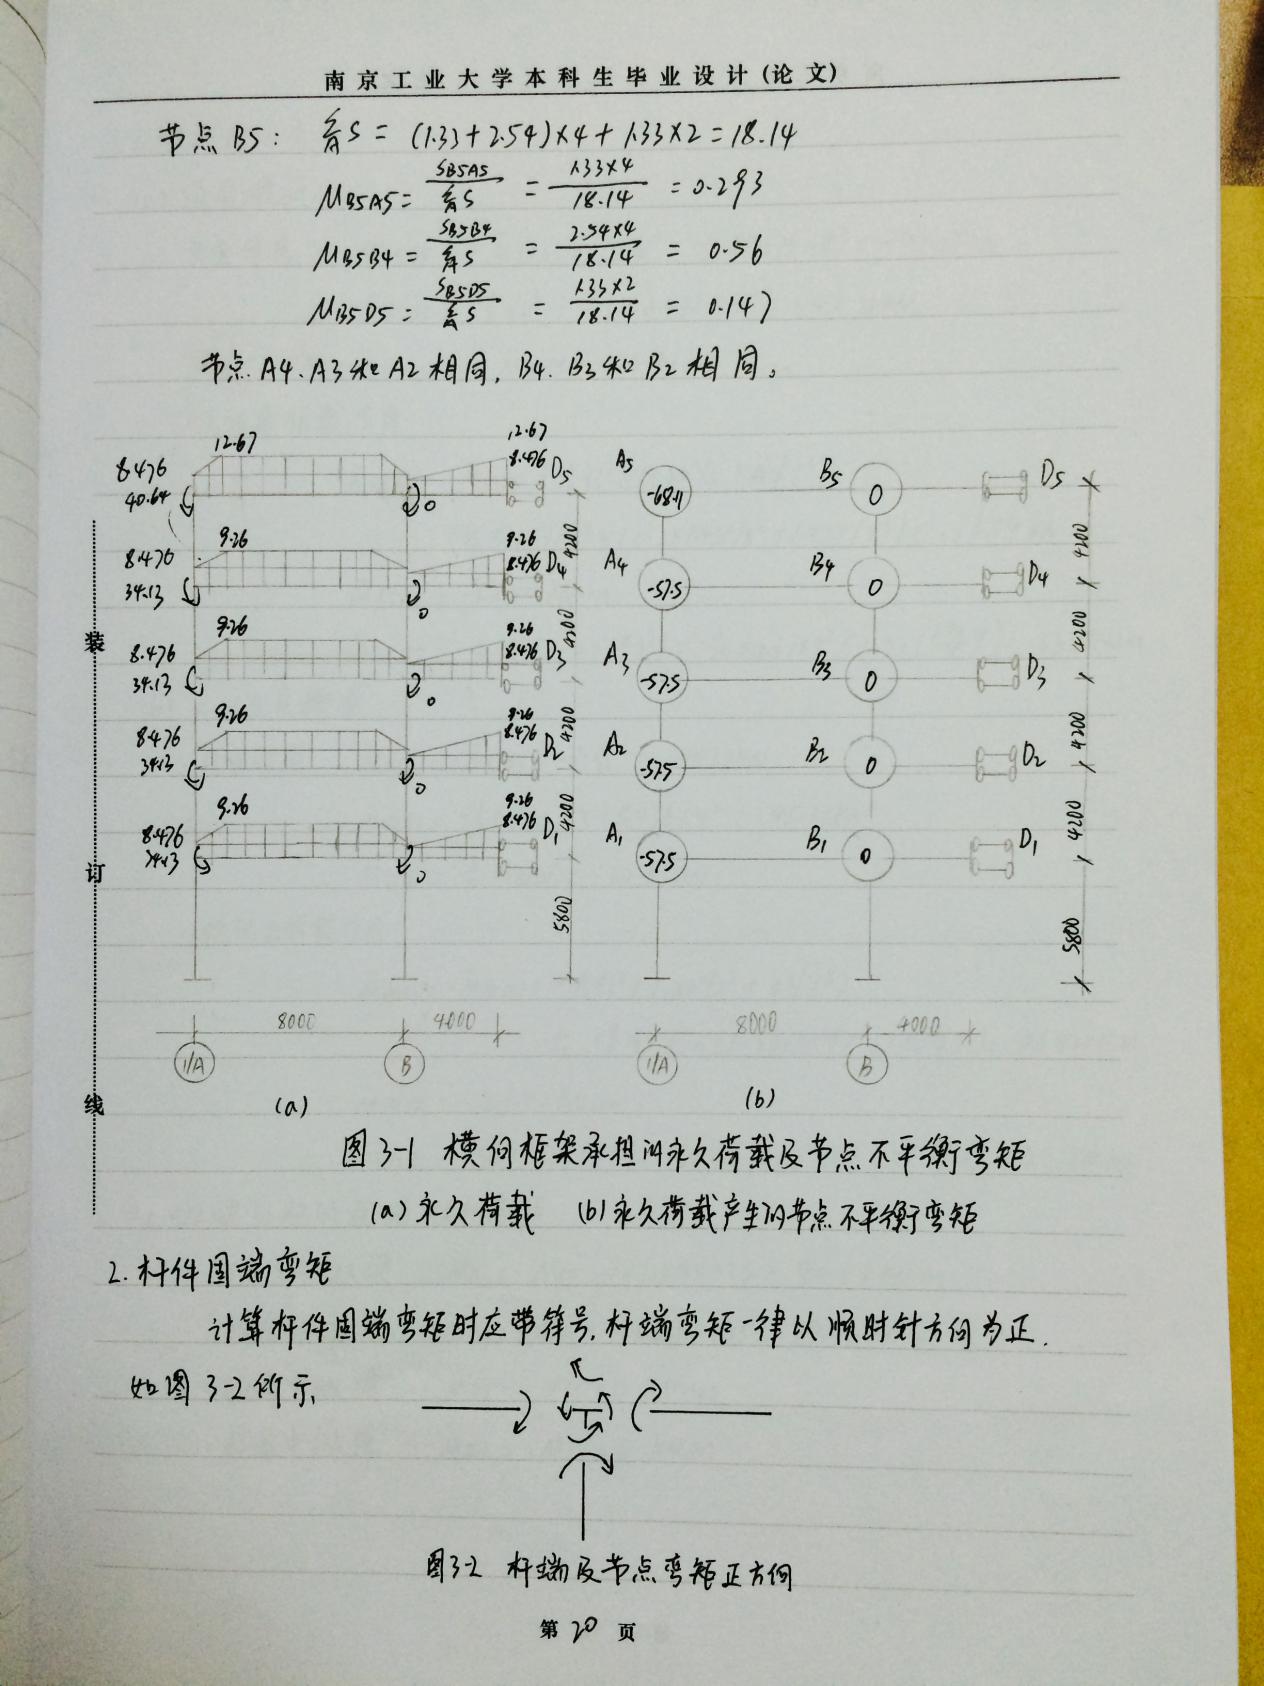 南京工业大学本科生毕业设计(论文)
节点B5: ΣS = (1.33+2.54)×4+1.33×2=18.14
μB5A5= SB5A5/ΣS = 1.33×4/18.14 =0.293
μB5B4= SB5B4/ΣS = 2.54×4/18.14 = 0.56
μB5D5= SB5D5/ΣS = 1.33×2/18.14 = 0.147
节点A4、A3和A2相同,B4、B3和B2相同。
12.67 12.67
8.476 8.476 D5 A5 B5 D5
40.64 0 -68.11 0
4200 4200
9.26 9.26
8.476 8.476 D4 A4 B4 D4
34.13 0 -57.5 0
4200 4200
9.26 9.26
8.476 8.476 D3 A3 B3 D3
34.13 0 -57.5 0
4200 4200
9.26 9.26
8.476 8.476 D2 A2 B2 D2
34.13 0 -57.5 0
4200 4200
9.26 9.26
8.476 8.476 D1 A1 B1 D1
34.13 0 -57.5 0
5800 5800
8000 4000 8000 4000
1/A B 1/A B
(a) (b)
装
订
线
图3-1 横向框架承担的永久荷载及节点不平衡弯矩
(a)永久荷载 (b)永久荷载产生的节点不平衡弯矩
2.杆件固端弯矩
计算杆件固端弯矩时应带符号,杆端弯矩一律以顺时针方向为正.
如图3-2所示
图3-2 杆端及节点弯矩正方向
第20页